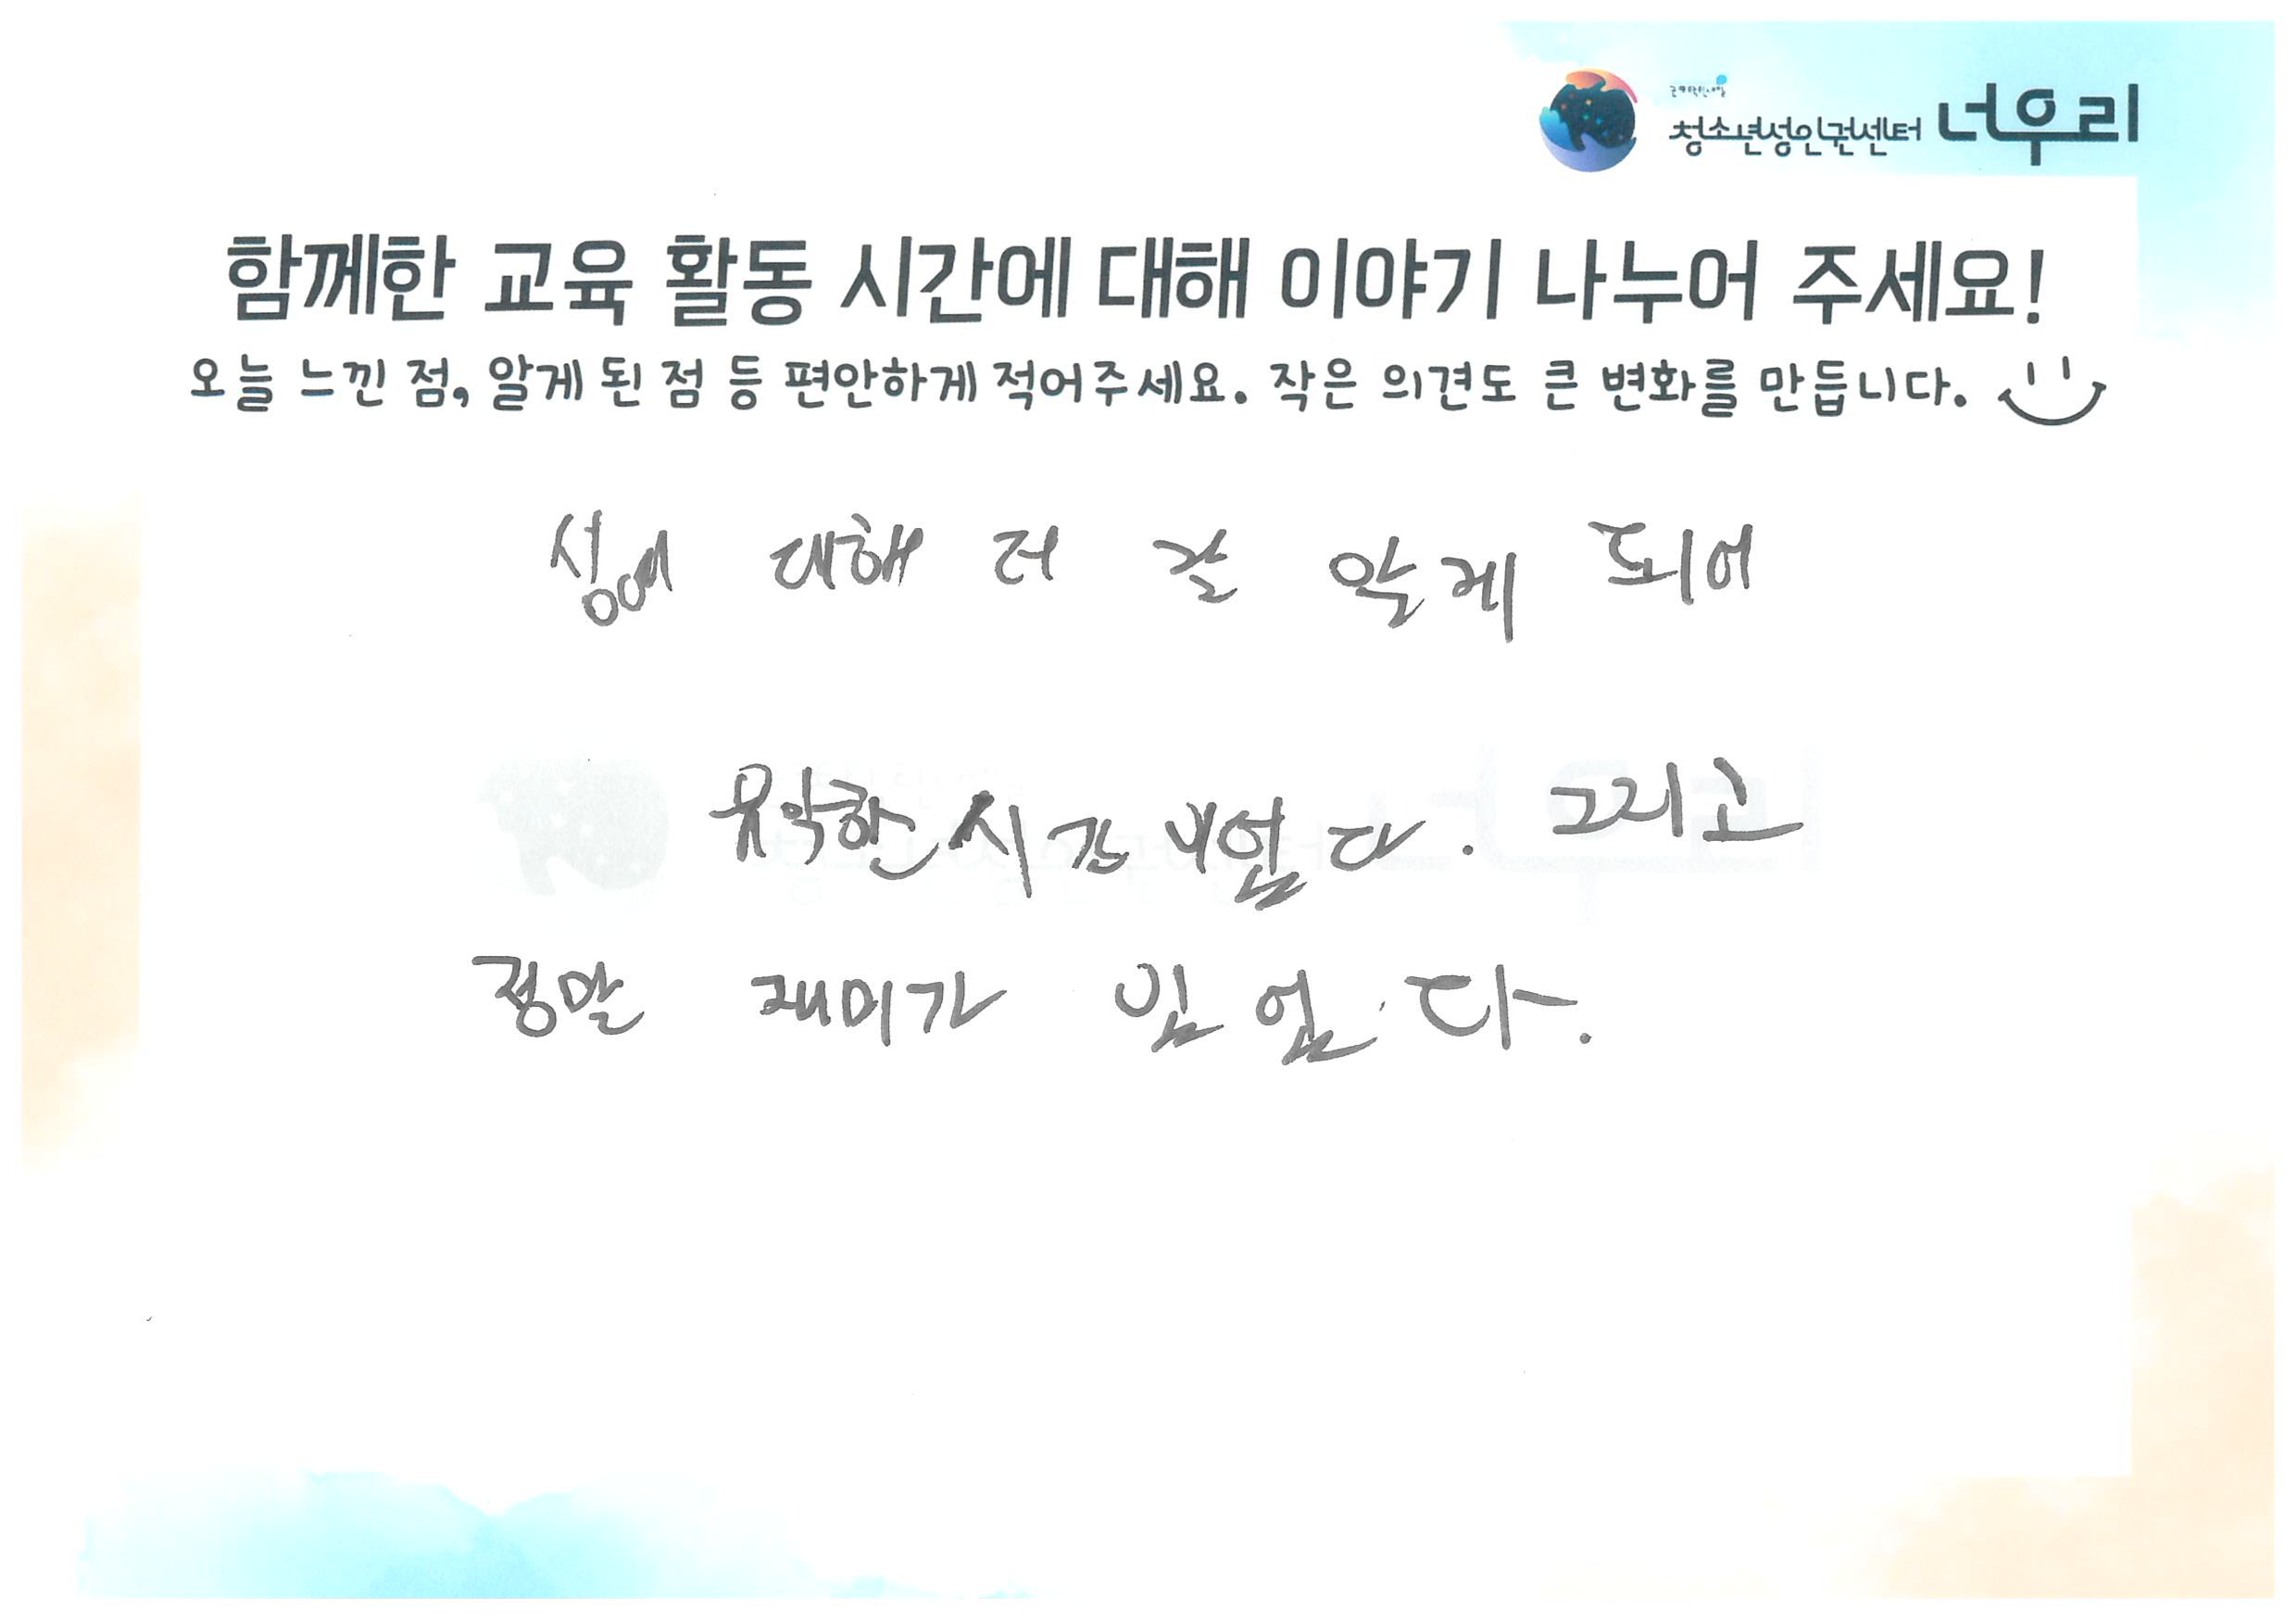 청소년성인권센터 너우리
함께한 교육 활동 시간에 대해 이야기 나누어 주세요!
오늘 느낀 점, 알게 된 점 등 편안하게 적어주세요. 작은 의견도 큰 변화를 만듭니다.
성에 대해 더 잘 알게 되어
유익한 시간이었다. 그리고
정말 재미가 있었다.